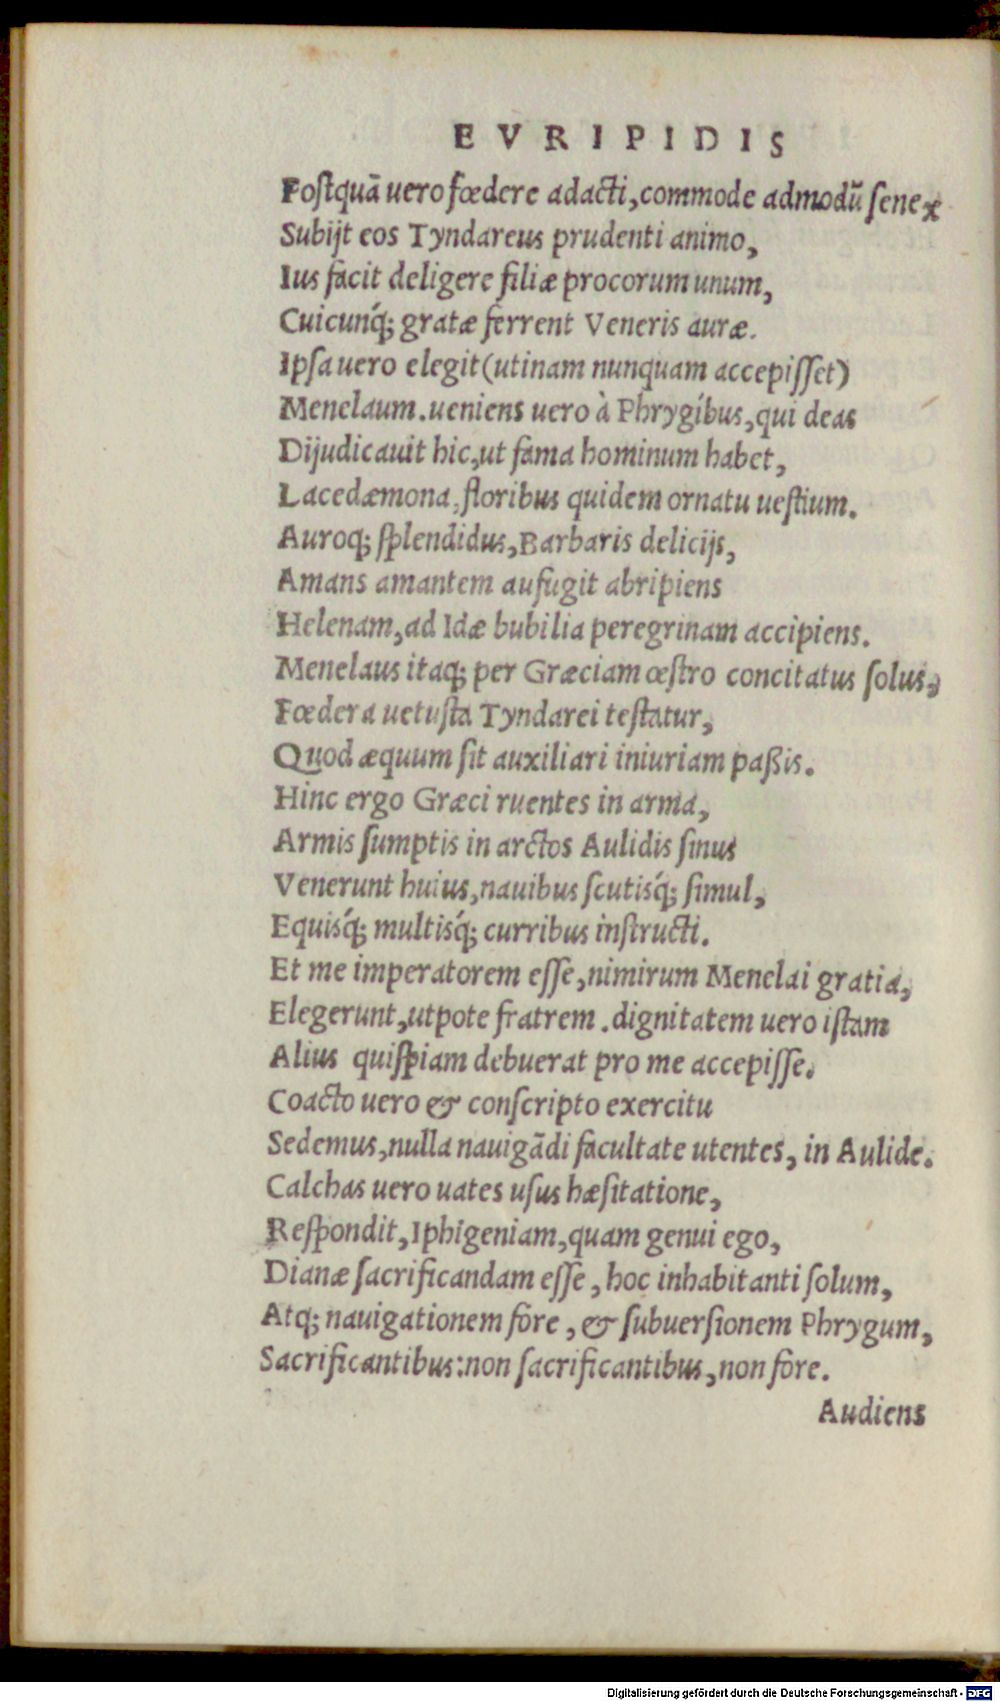 EVRIPIDIS
Poſtquā uero fœdere adacti, commode admodū ſenex
Subijt eos Tyndareus prudenti animo,
Ius facit deligere filiæ procorum unum,
Cuicunq́; gratæ ferrent Veneris auræ.
Ipſa uero elegit (utinam nunquam accepiſſet)
Menelaum. ueniens uero à Phrygibus, qui deas
Dijudicauit hic, ut fama hominum habet,
Lacedæmona, floribus quidem ornatu ueſtium.
Auroq; ſplendidus, Barbaris delicijs,
Amans amantem aufugit abripiens
Helenam, ad Idæ bubilia peregrinam accipiens.
Menelaus itaq; per Græciam œſtro concitatus ſolus,
Fœdera uetuſta Tyndarei teſtatur,
Quod æquum ſit auxiliari iniuriam paßis.
Hinc ergo Græci ruentes in arma,
Armis ſumptis in arctos Aulidis ſinus
Venerunt huius, nauibus ſcutisq́; ſimul,
Equisq́; multisq́; curribus inſtructi.
Et me imperatorem eſſe, nimirum Menelai gratia,
Elegerunt, utpote fratrem. dignitatem uero iſtam
Alius quiſpiam debuerat pro me accepiſſe.
Coacto uero & conſcripto exercitu
Sedemus, nulla nauigādi facultate utentes, in Aulide.
Calchas uero uates uſus hæſitatione,
Reſpondit, Iphigeniam, quam genui ego,
Dianæ ſacrificandam eſſe, hoc inhabitanti ſolum,
Atq; nauigationem fore, & ſubuerſionem Phrygum,
Sacrificantibus: non ſacrificantibus, non fore.
Audiens
Digitalisierung gefördert durch die Deutsche Forschungsgemeinschaft - DFG